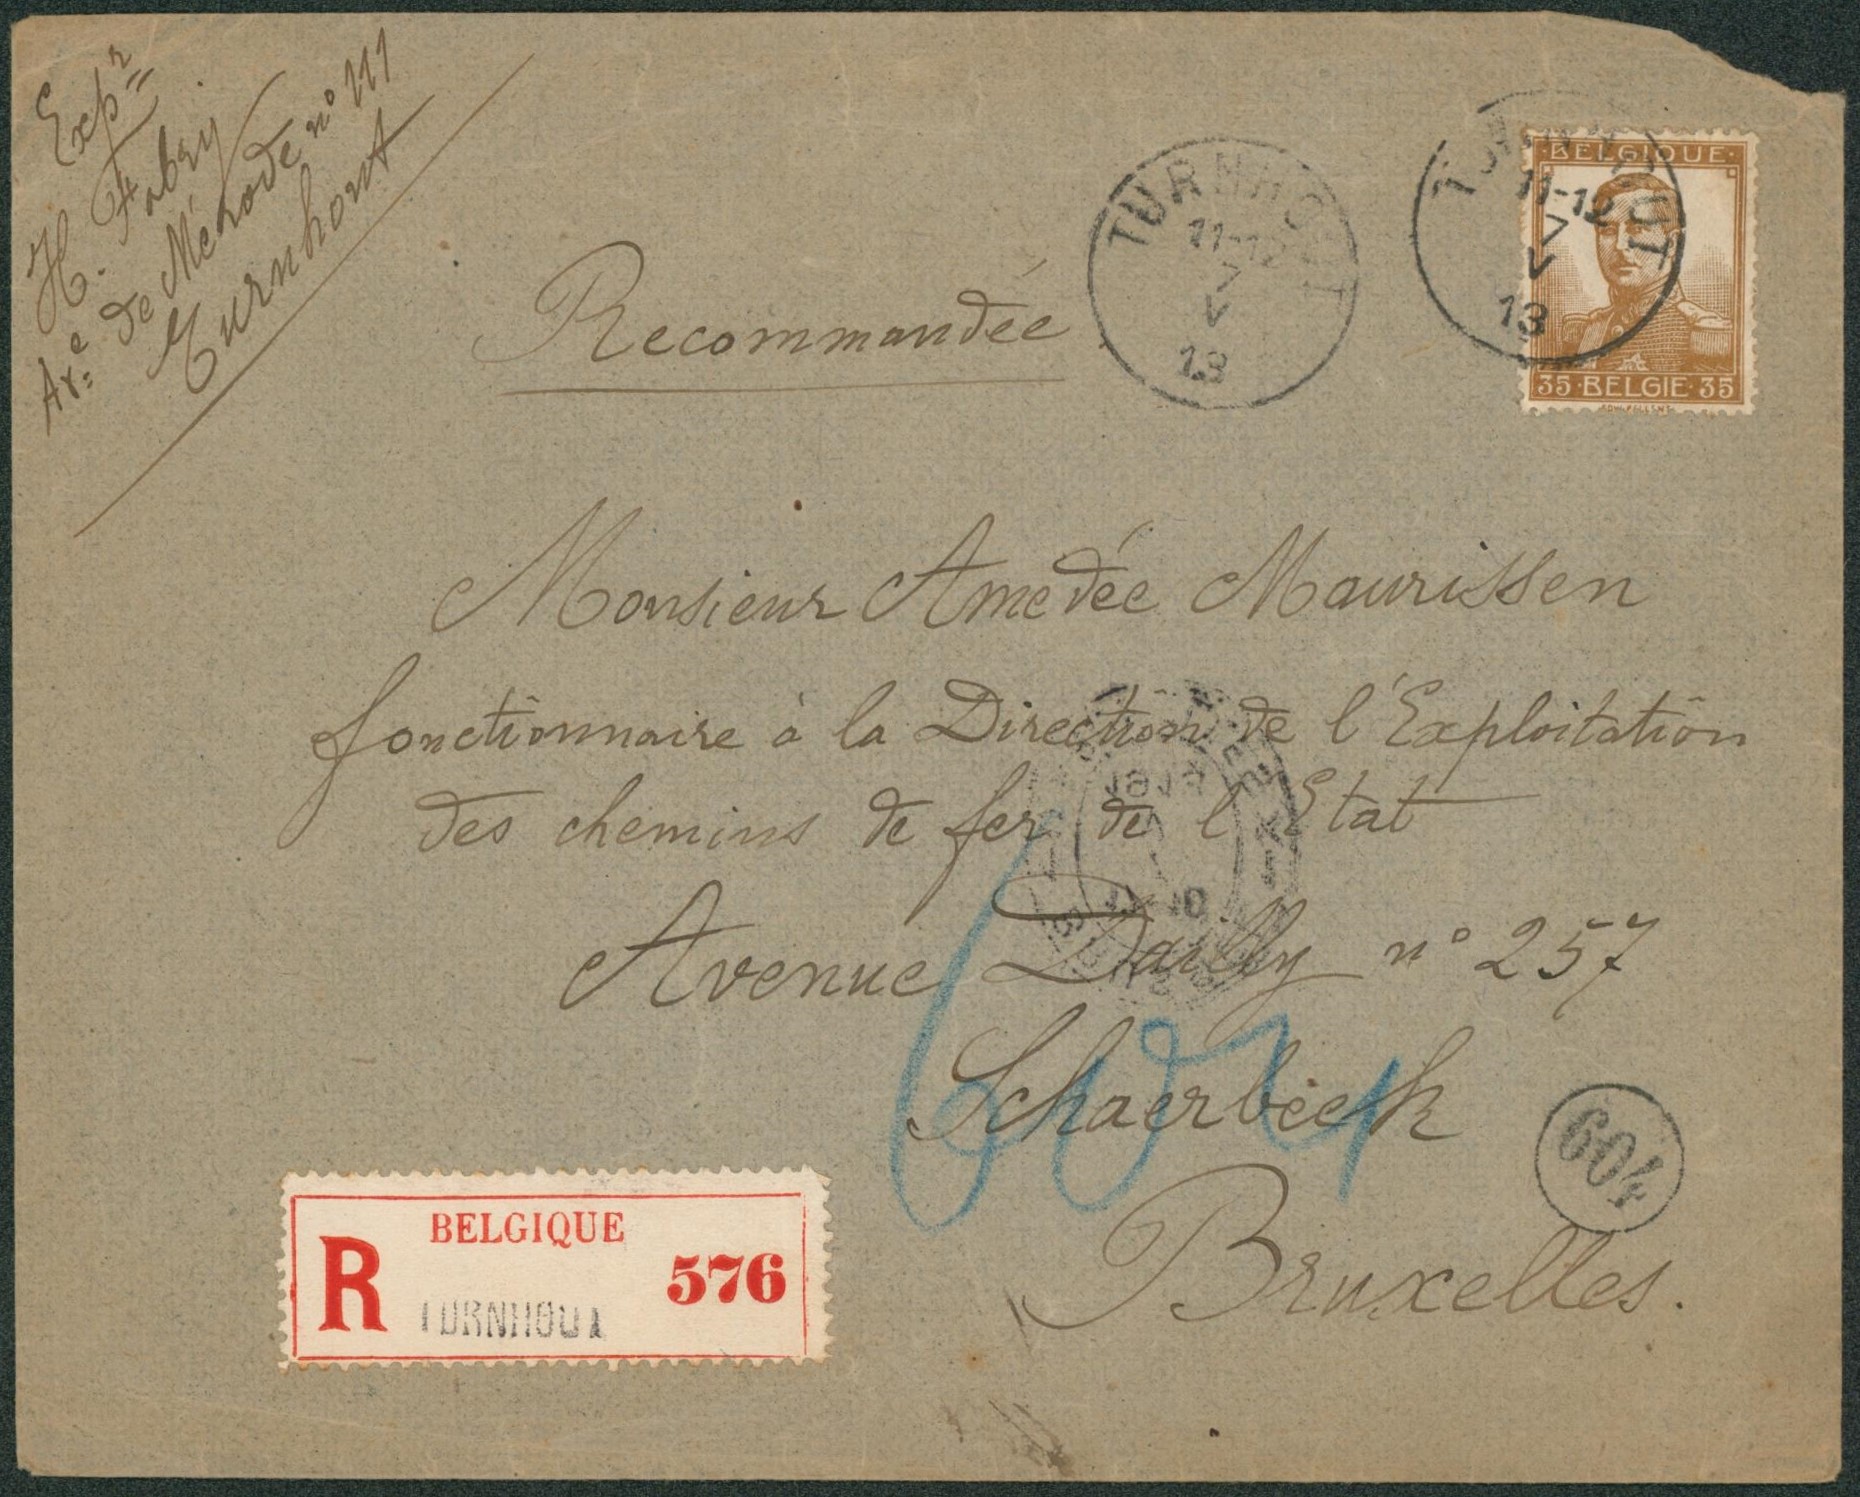 Expr
H. Fabry
Ave de Mérode n° 111
Turnhout
Recommandée
TURNHOUT
11-12
7
V
13
TURNHOUT
11-12
7
V
13
BELGIQUE
35 BELGIE 35
Monsieur Amedée Maurissen
fonctionnaire à la Direction de l'Exploitation
des chemins de fer de l'Etat
Avenue Dailly n° 257
Schaerbeek
Bruxelles.
604
BELGIQUE
R 576
TURNHOUT